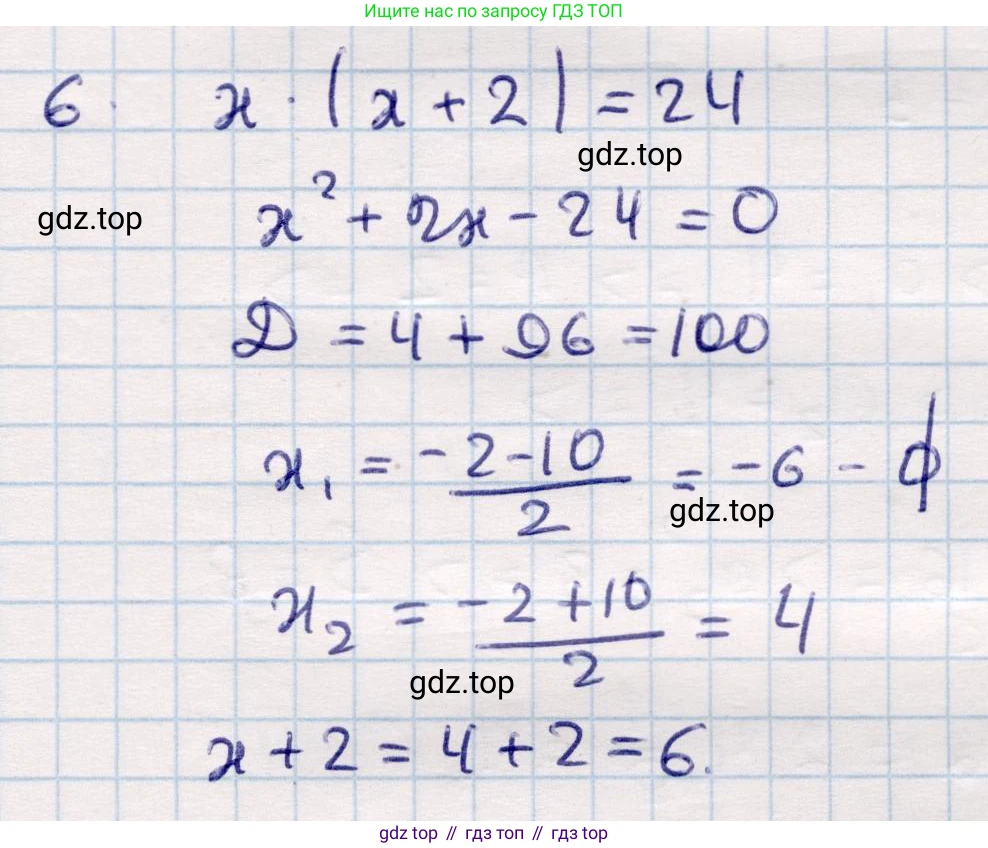 Ищите нас по запросу ГДЗ ТОП
6. x · (x + 2) = 24
gdz.top
x² + 2x - 24 = 0
gdz.top
D = 4 + 96 = 100
x₁ = (-2-10)/2 = -6 - ϕ
gdz.top
x₂ = (-2+10)/2 = 4
gdz.top
x + 2 = 4 + 2 = 6.
gdz top // гдз топ // gdz top